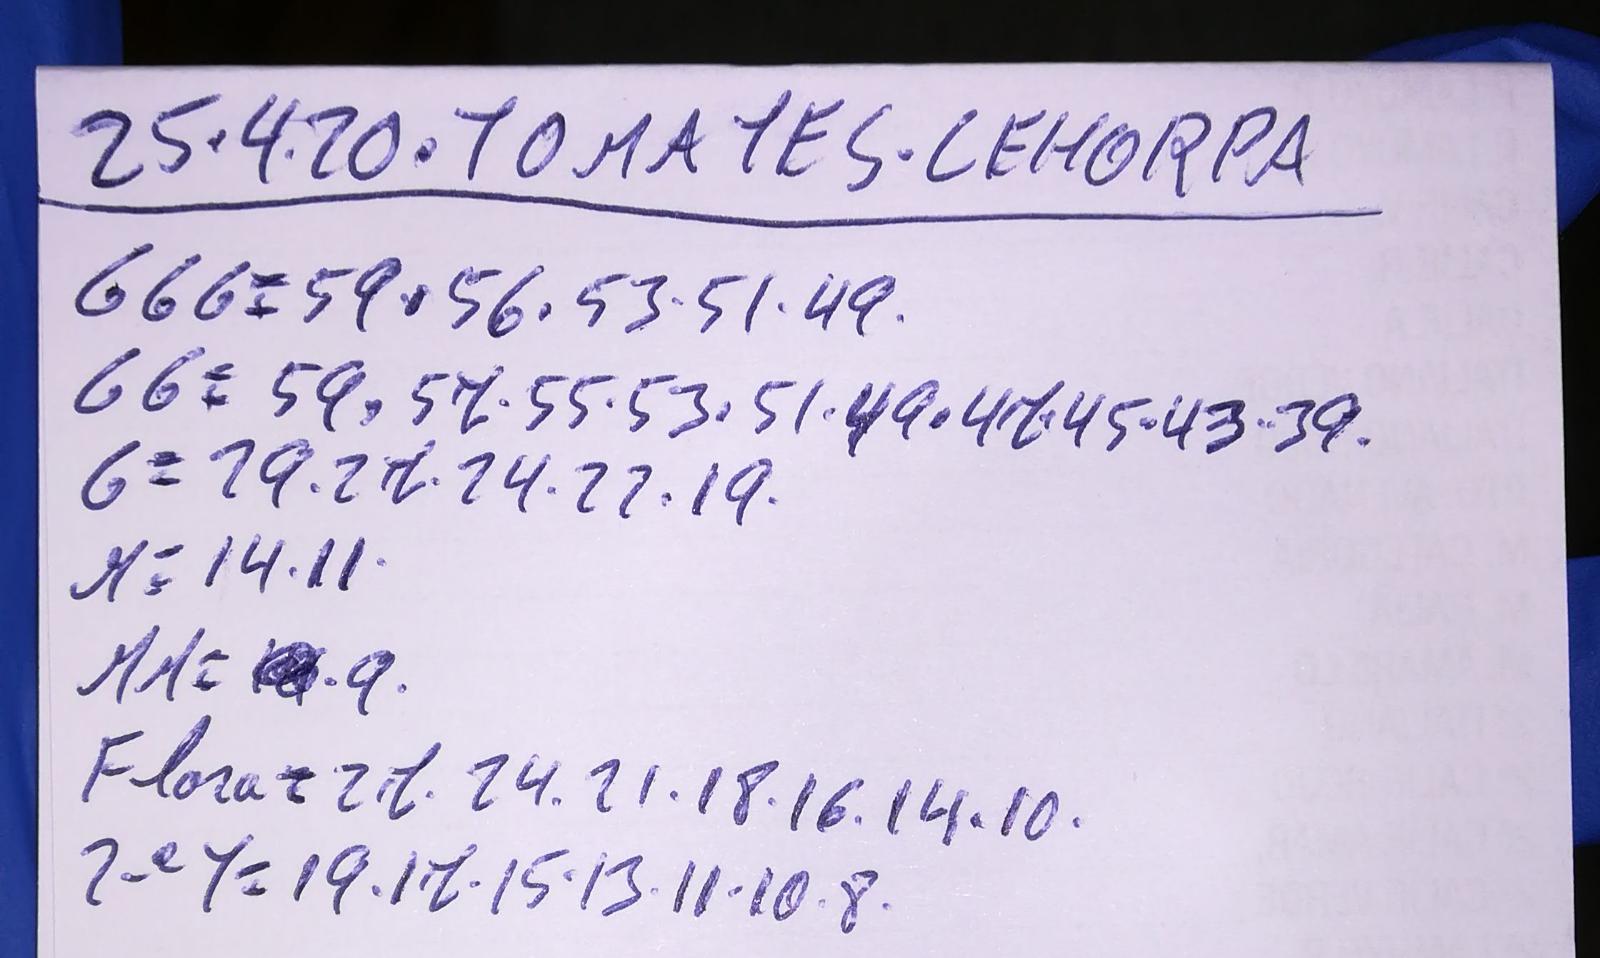 25.4.20.TOMATES.CEHORPA
GGG=59.56.53.51.49.
GG=59.57.55.53.51.49.47.45.43.39.
G=29.27.24.22.19.
M=14.11.
MM= .9.
Flora=27.24.21.18.16.14.10.
2-ªY=19.17.15.13.11.10.8.